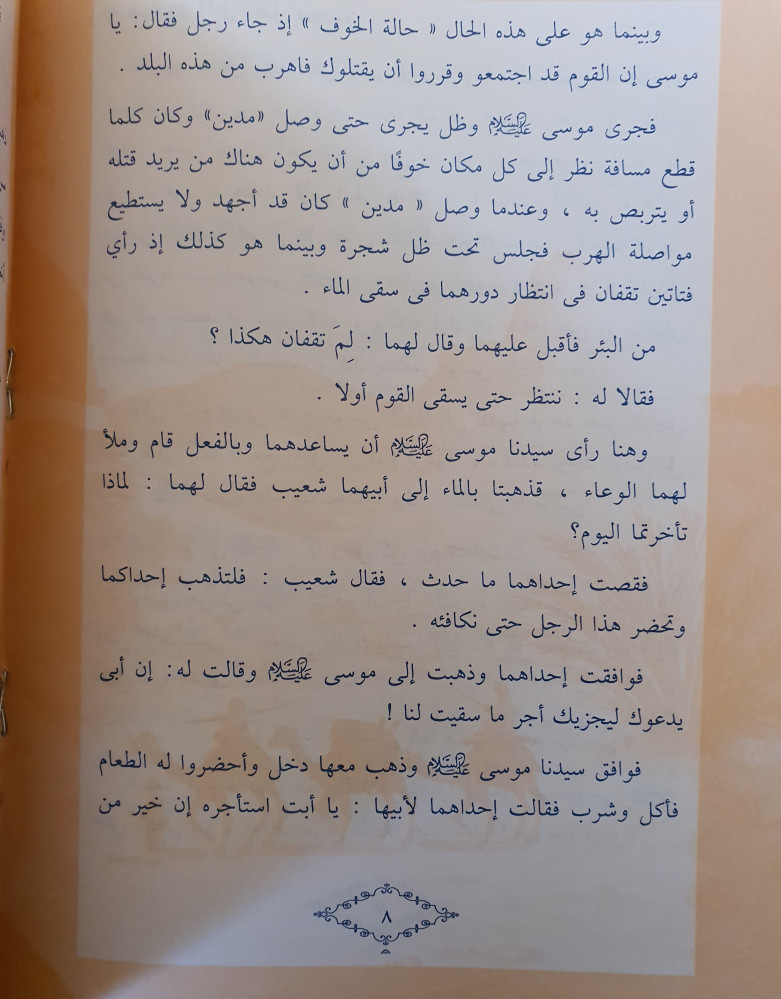 وبينما هو على هذه الحال « حالة الخوف » إذ جاء رجل فقال: يا
موسى إن القوم قد اجتمعو وقرروا أن يقتلوك فاهرب من هذه البلد .
فجرى موسى عليه السلام وظل يجرى حتى وصل «مدين» وكان كلما
قطع مسافة نظر إلى كل مكان خوفًا من أن يكون هناك من يريد قتله
أو يتربص به ، وعندما وصل « مدين » كان قد أجهد ولا يستطيع
مواصلة الهرب فجلس تحت ظل شجرة وبينما هو كذلك إذ رأي
فتاتين تقفان فى انتظار دورهما فى سقى الماء .
من البئر فأقبل عليهما وقال لهما : لِمَ تقفان هكذا ؟
فقالا له : ننتظر حتى يسقى القوم أولا .
وهنا رأى سيدنا موسى عليه السلام أن يساعدهما وبالفعل قام وملأ
لهما الوعاء ، قذهبتا بالماء إلى أبيهما شعيب فقال لهما : لماذا
تأخرتما اليوم؟
فقصت إحداهما ما حدث ، فقال شعيب : فلتذهب إحداكما
وتحضر هذا الرجل حتى نكافئه .
فوافقت إحداهما وذهبت إلى موسى عليه السلام وقالت له: إن أبى
يدعوك ليجزيك أجر ما سقيت لنا !
فوافق سيدنا موسى عليه السلام وذهب معها دخل وأحضروا له الطعام
فأكل وشرب فقالت إحداهما لأبيها : يا أبت استأجره إن خير من
٨